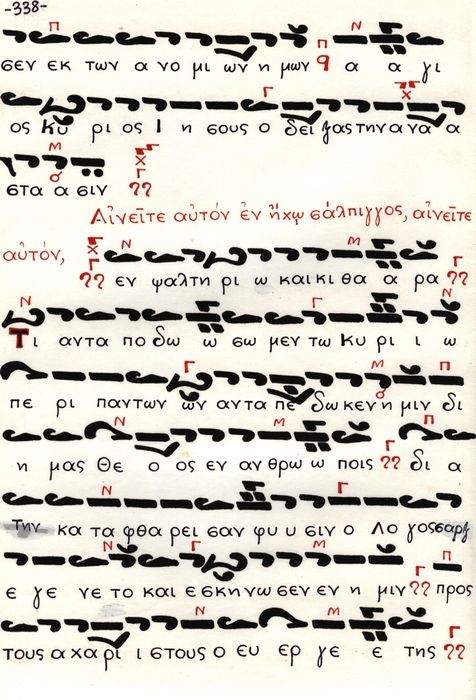 -338-
σεν εκ των α νο μι ων η μων α α γι
ος κυ ρι ος Ι η σους ο δει ξας την α να α
στα α σιν
Αἰνεῖτε αὐτόν ἐν ἤχῳ σάλπιγγος, αἰνεῖτε
αὐτόν,
εν ψαλτη ρι ω και κι θα α ρα
Τι αντα πο δω ω σω μεν τω Κυ ρι ι ω
πε ρι παντων ων αντα πε δω κεν η μιν δι
η μας Θε ο ος εν αν θρω ω ποις δι α
την κα τα φθα ρει σαν φυ υ σιν ο Λο γος σαρξ
ε γε νε το και ε σκη νω σεν εν η μιν προς
τους α χα ρι ι στους ο ευ ερ γε ε της